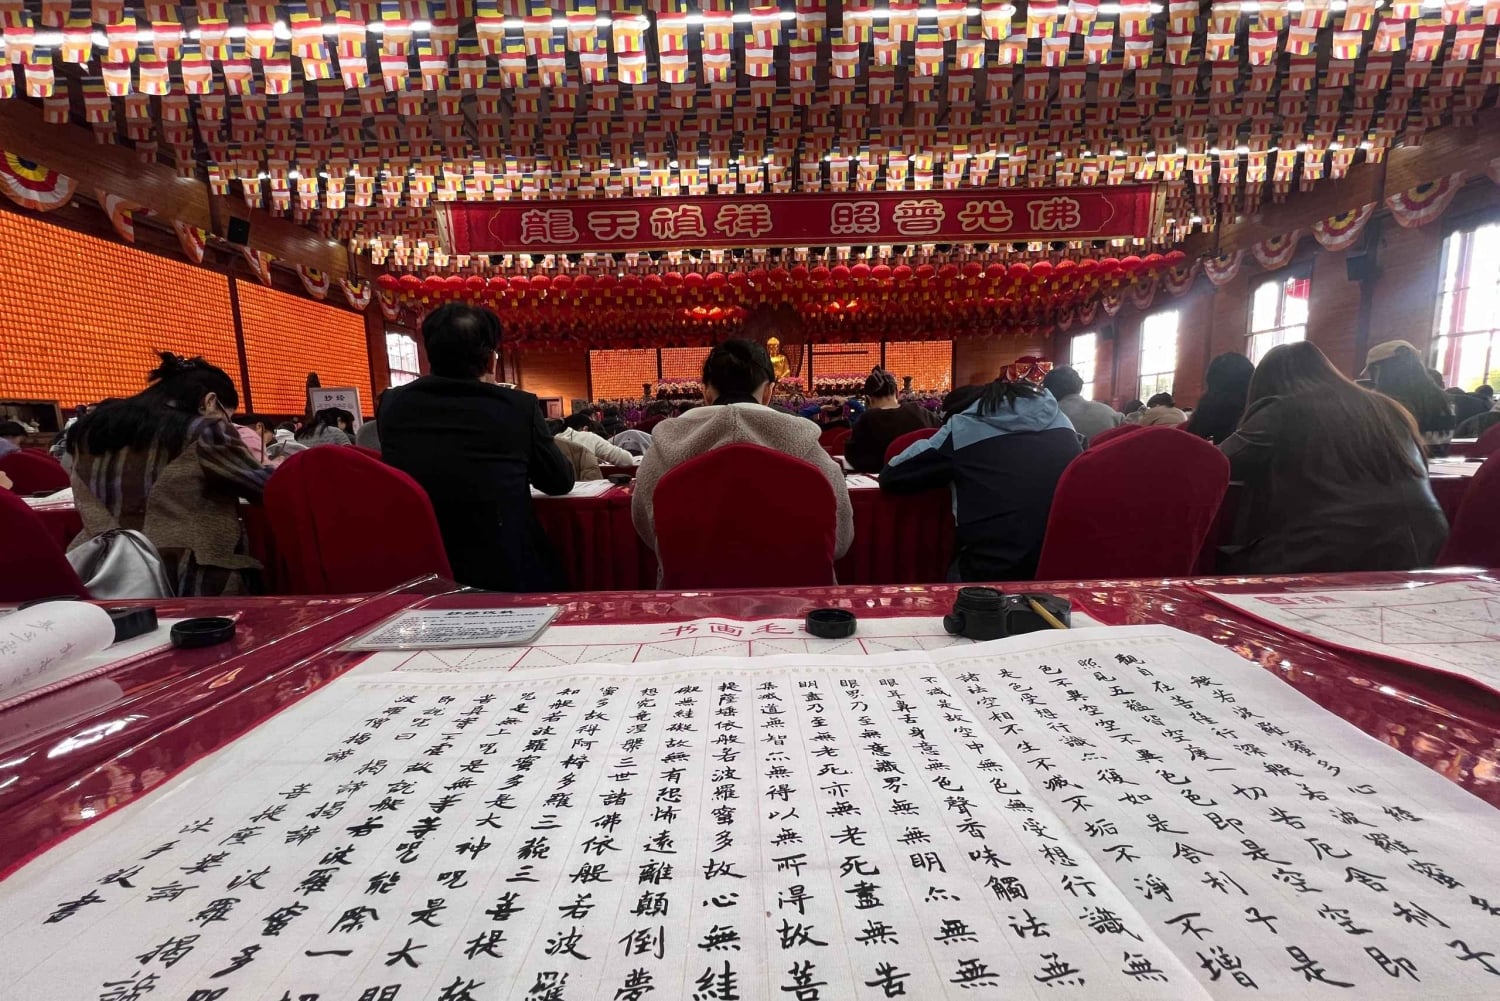 佛光普照 祥禎天龍
抄经
抄经仪轨
书画毛
般若波羅蜜多心經
觀自在菩薩行深般若波羅蜜多
照見五蘊皆空度一切苦厄舍利子
色不異空空不異色色即是空空即
是色受想行識亦復如是舍利子是
諸法空相不生不滅不垢不淨不增
不減是故空中無色無受想行識無
眼耳鼻舌身意無色聲香味觸法無
眼界乃至無意識界無無明亦無無
明盡乃至無老死亦無老死盡無苦
集滅道無智亦無得以無所得故菩
提薩埵依般若波羅蜜多故心無絓
礙無絓礙故無有恐怖遠離顛倒夢
想究竟涅槃三世諸佛依般若波羅
蜜多故得阿耨多羅三藐三菩提故
知般若波羅蜜多是大神咒是大明
咒是無上咒是無等等咒能除一切
苦真實不虛故說般若波羅蜜多咒
即說咒曰 揭諦揭諦 波羅揭諦
波羅僧揭諦 菩提薩婆訶
沐手敬書